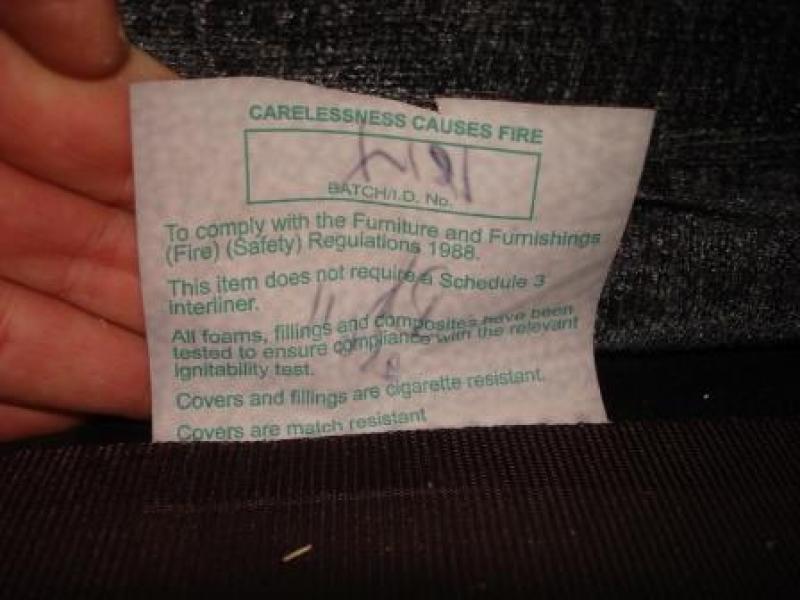 CARELESSNESS CAUSES FIRE
BATCH/I.D. No.
To comply with the Furniture and Furnishings
(Fire) (Safety) Regulations 1988.
This item does not require a Schedule 3
interliner.
All foams, fillings and composites have been
tested to ensure compliance with the relevant
ignitability test.
Covers and fillings are cigarette resistant.
Covers are match resistant